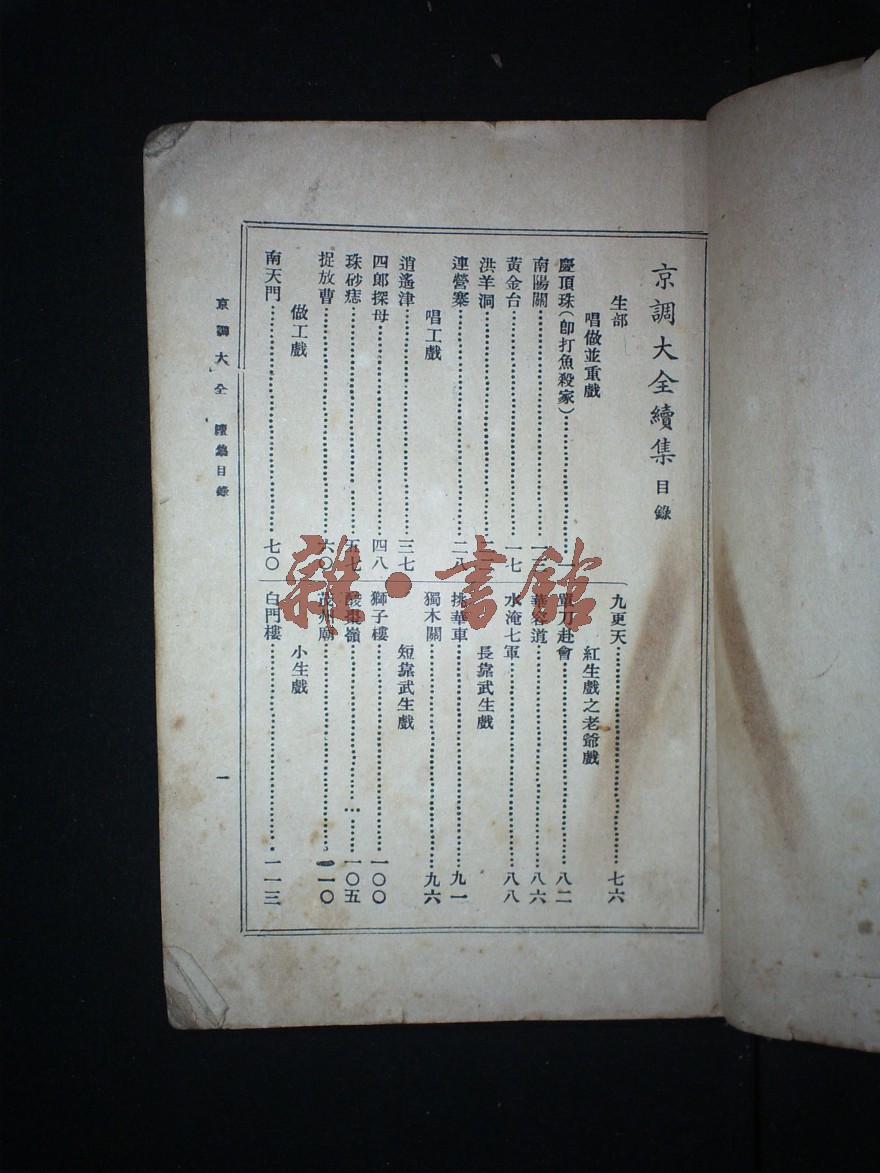 京調大全續集 目錄
生部
唱做並重戲
慶頂珠(卽打魚殺家)⋯⋯一
南陽關⋯⋯一三
黃金台⋯⋯一七
洪羊洞⋯⋯二二
連營寨⋯⋯二八
唱工戲
逍遙津⋯⋯三七
四郎探母⋯⋯四八
珠砂痣⋯⋯五七
捉放曹⋯⋯六〇
做工戲
南天門⋯⋯七〇
九更天⋯⋯七六
紅生戲之老爺戲
單刀赴會⋯⋯八二
華容道⋯⋯八六
水淹七軍⋯⋯八八
長靠武生戲
挑華車⋯⋯九一
獨木關⋯⋯九六
短靠武生戲
獅子樓⋯⋯一〇〇
酸棗嶺⋯⋯一〇五
茂州廟⋯⋯一一〇
小生戲
白門樓⋯⋯一一三
京調大全 續集目錄
一
雜·書館